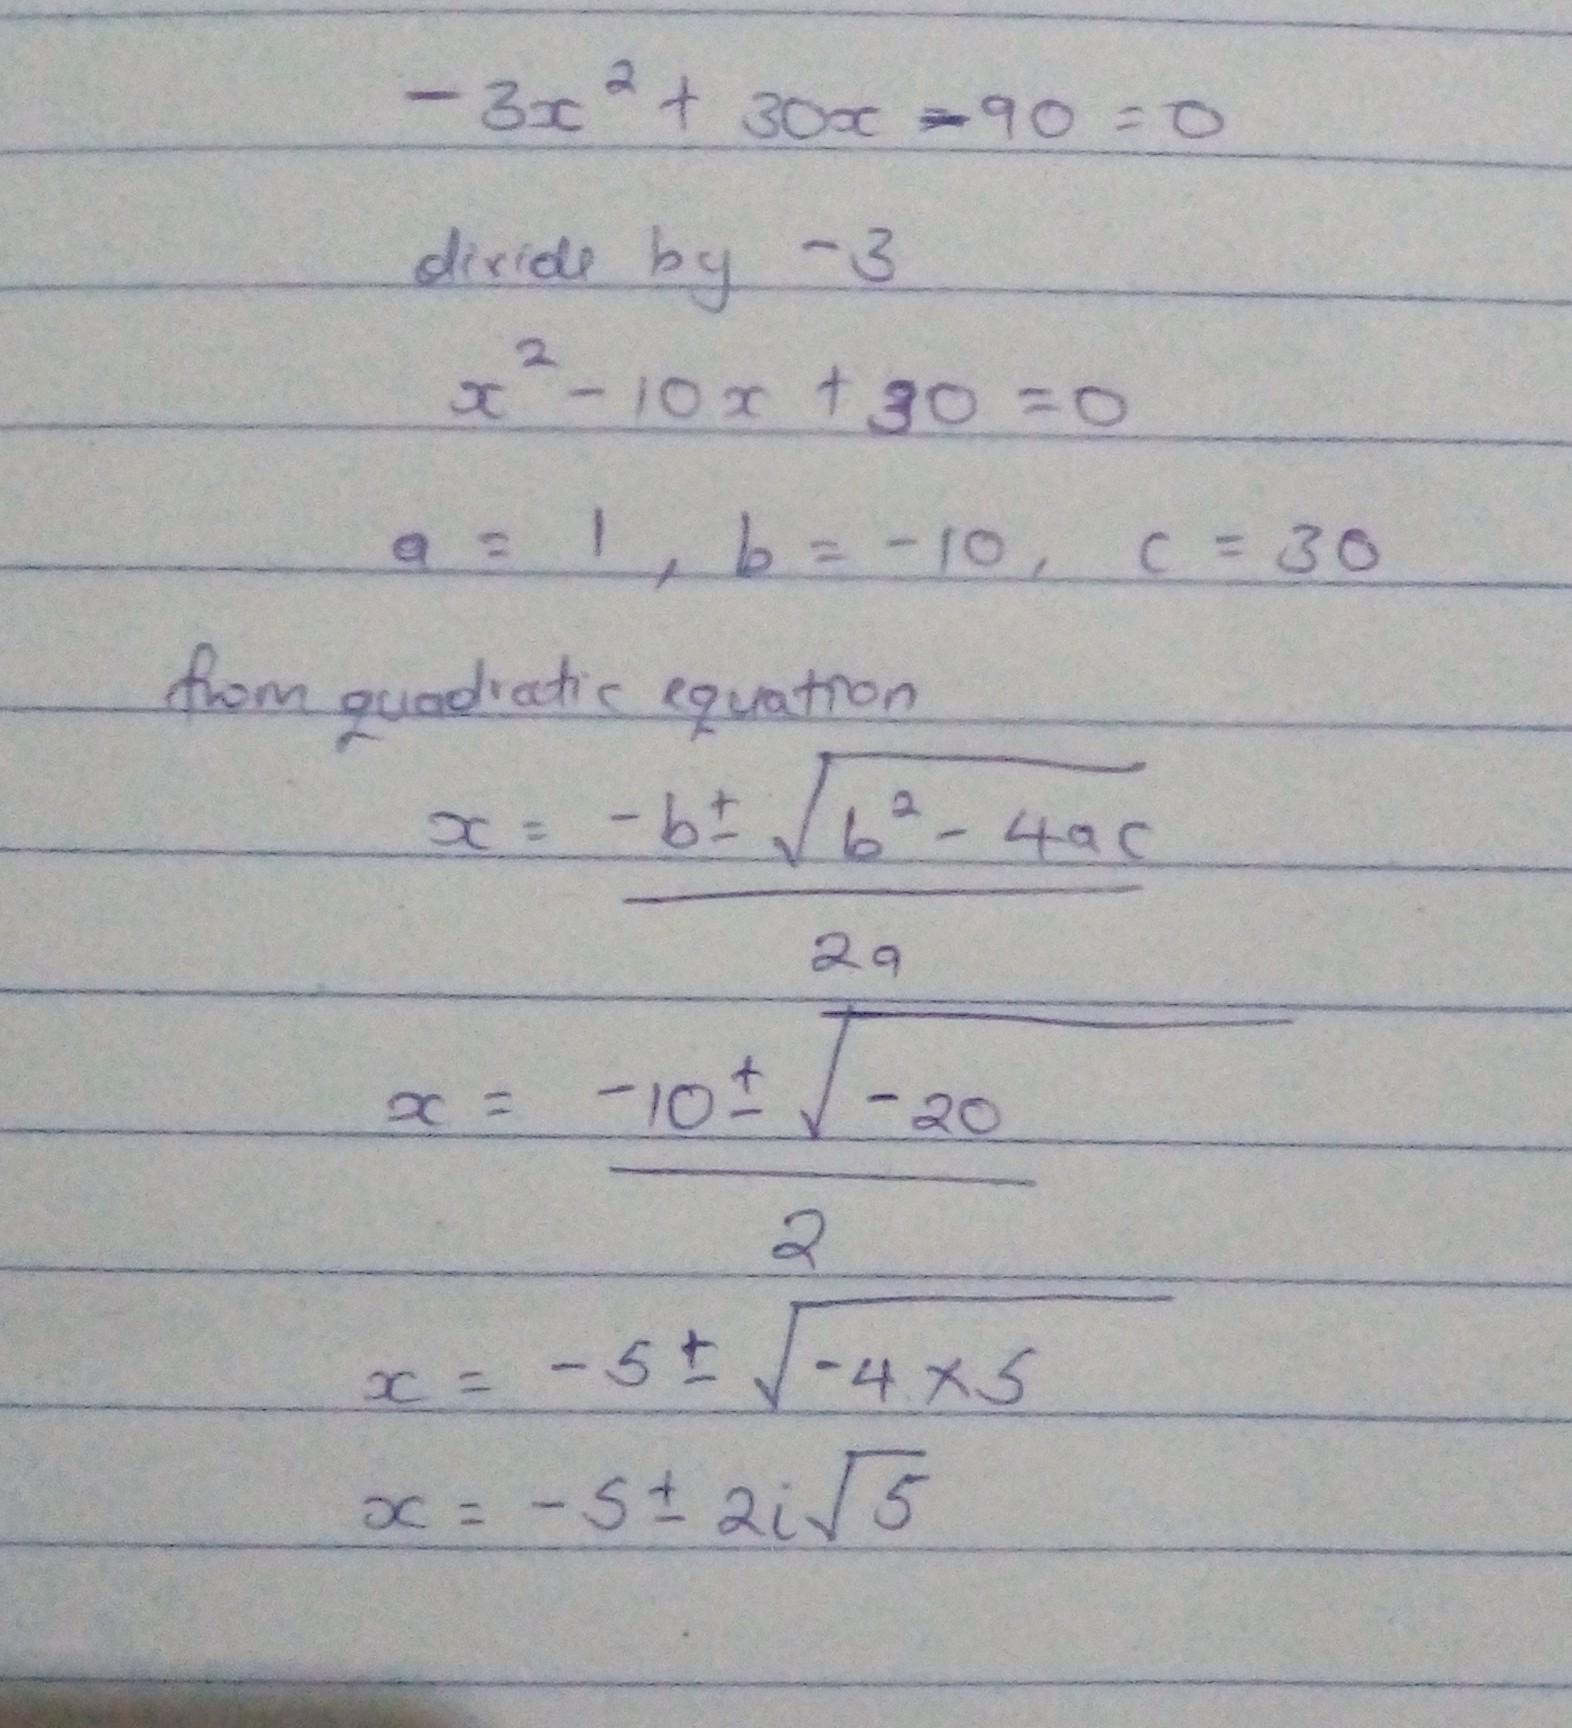 -3x² + 30x - 90 = 0
divide by -3
x² - 10x + 30 = 0
a = 1, b = -10, c = 30
from quadratic equation
x = -b ± √(b² - 4ac)
2a
x = -10 ± √(-20)
2
x = -5 ± √(-4 × 5)
x = -5 ± 2i√5